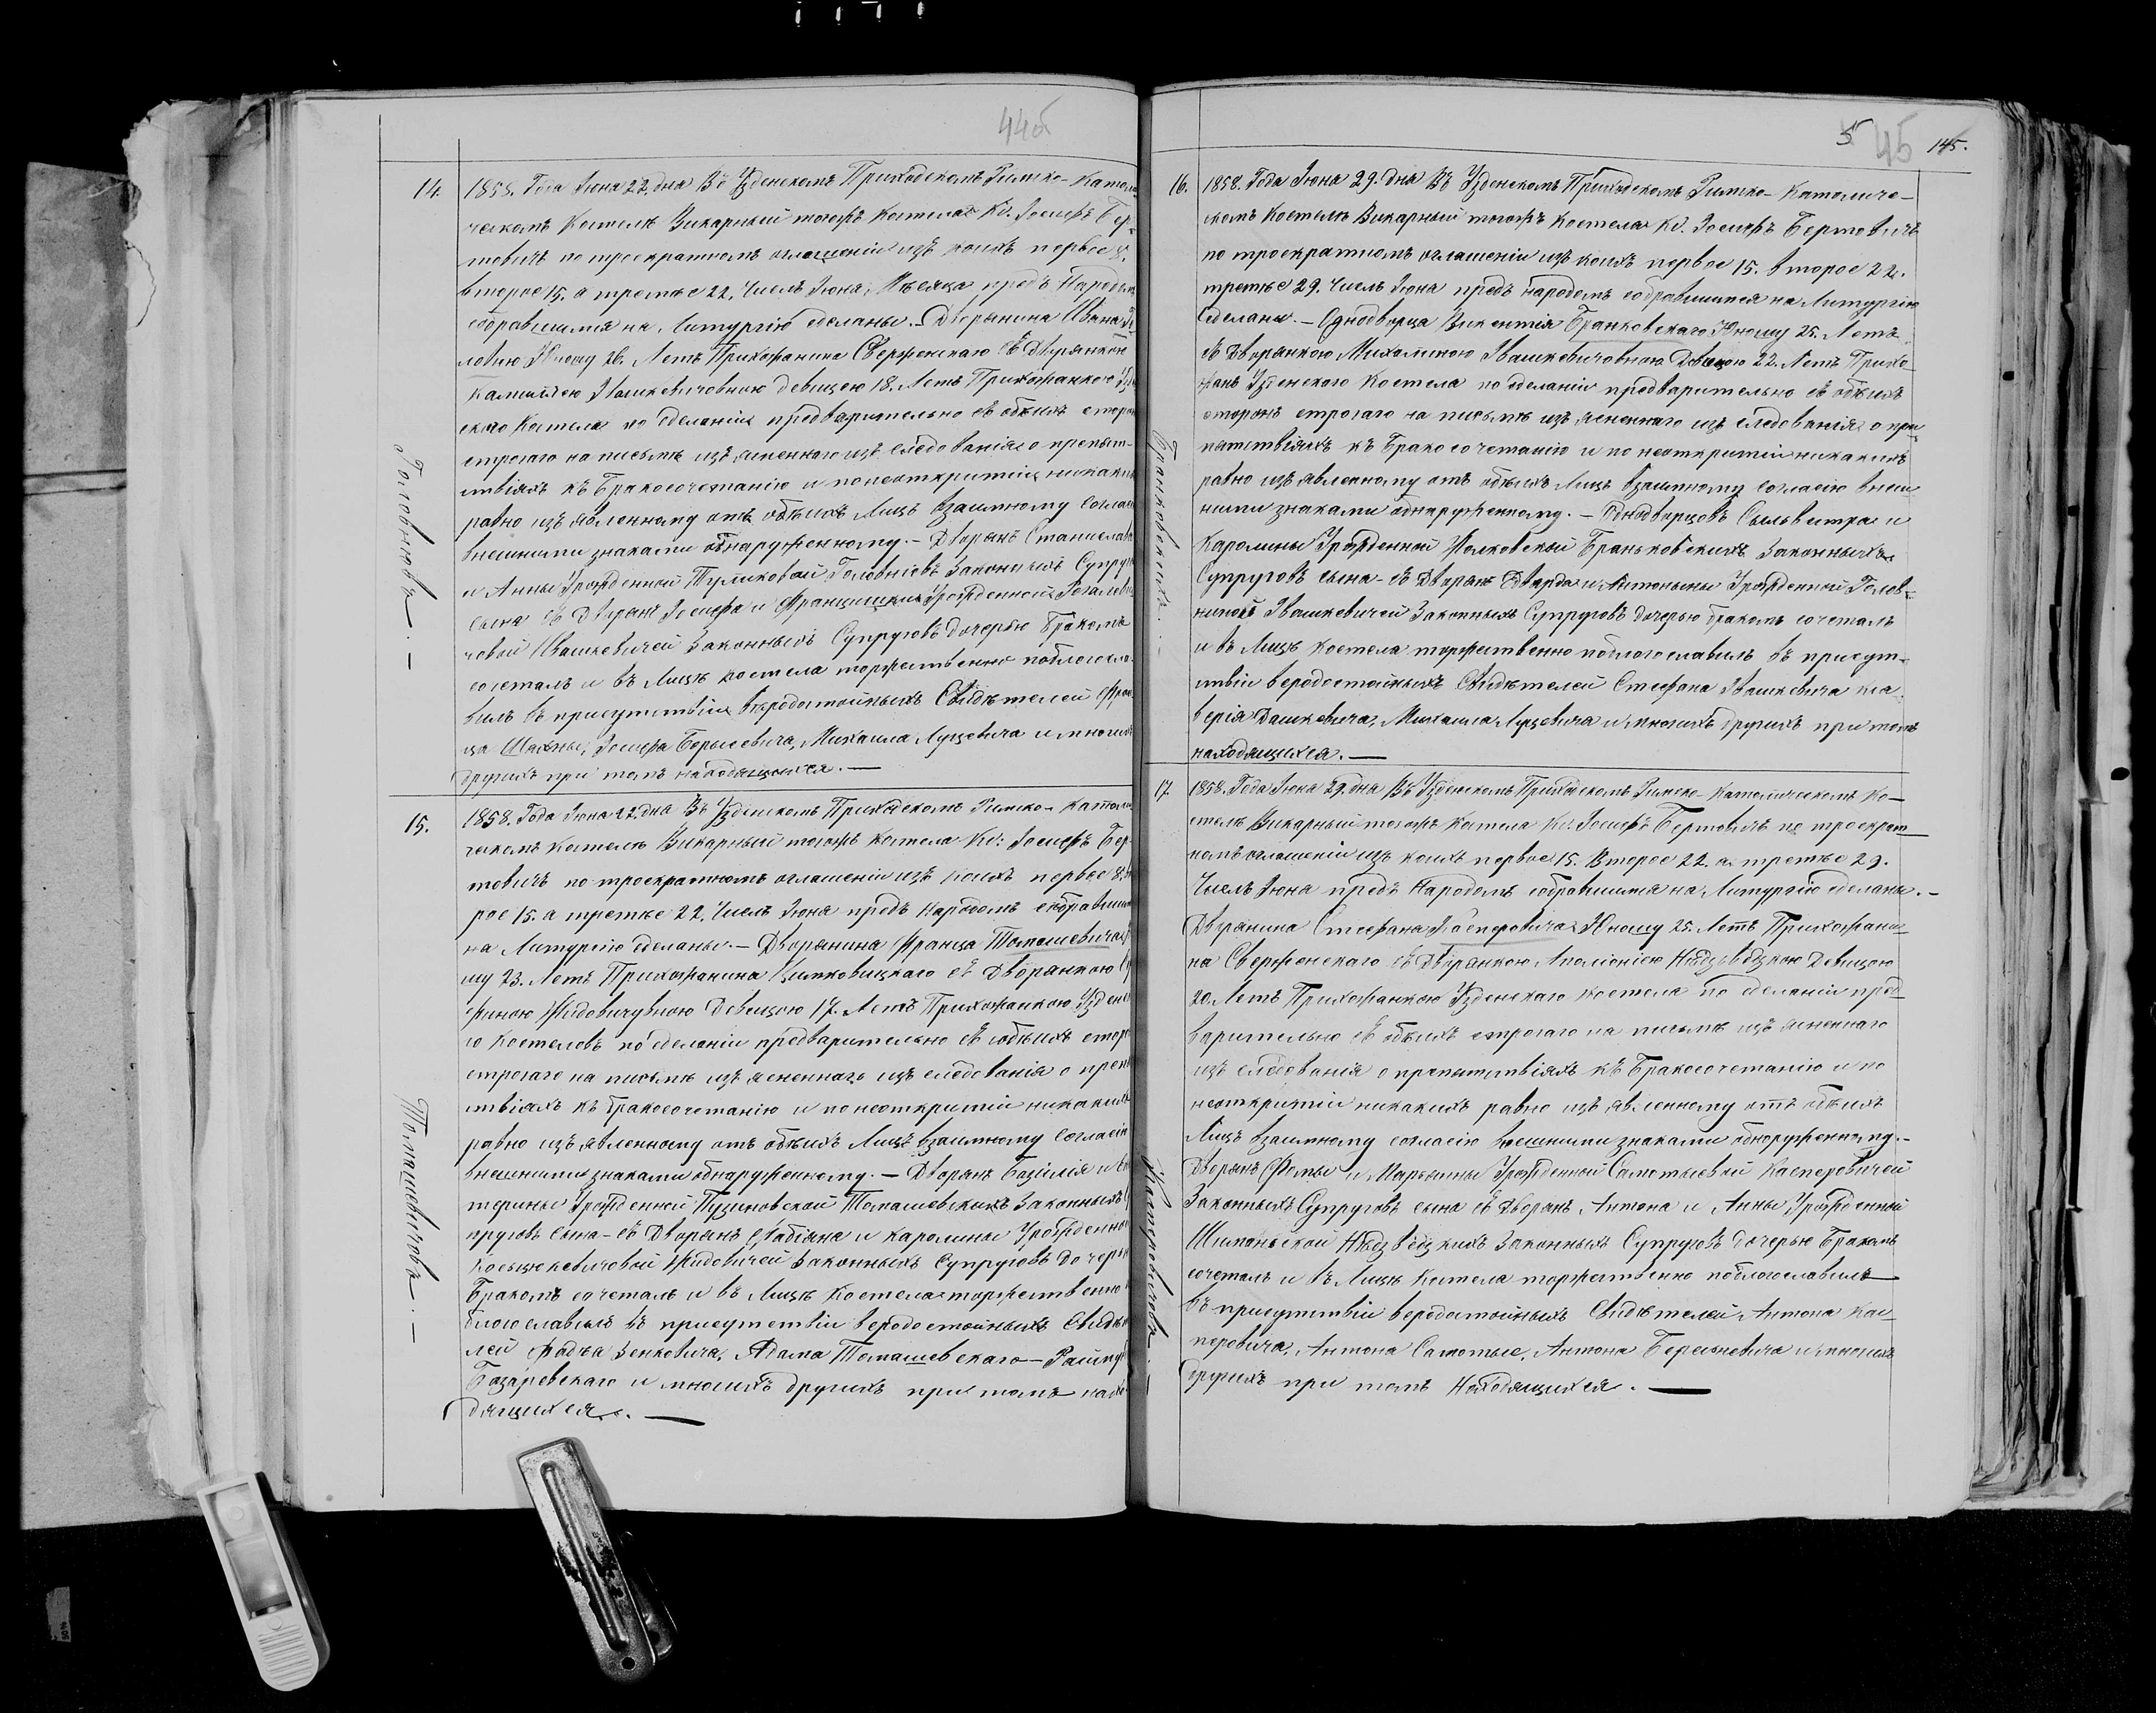 44об
14.
1858. Года Іюна 22. дна Въ Узденскомъ Приходскомъ Римско-Католи
ческомъ Костелѣ Викарный тогожъ Костела Кс. Іосифъ Бер-
товичъ по троекратномъ оглашеніи изъ коихъ первое 8.
второе 15. а третье 22. Числъ Іюна Мѣсяца предъ Народом
собравшимся на Литургію сделаны. - Дворянина Ивана Го
ловню Юношу 26. Летъ Прихожанина Сверженскаго съ Дворянкою
Ивашкевичовною Девицею 18. Летъ Прихожанкою Узд
скаго Костела по сделаніи предварительно съ обѣихъ сторон
строгаго на письмѣ изъясненнаго изъ следованія о препят-
ствіяхъ къ Бракосочетанію и по неоткритіи никаких
равно изъявленному отъ обѣихъ Лицъ взаимному соглас
внешними знаками обнаруженному. - Дворянъ Станислава
и Анны Урожденной Тумиковой Головнёвъ Законныхъ Супруг
сына съ Дворянъ Іосифа и Францишки Урожденной Рогалеви
човой Ивашкевичей Законныхъ Супруговъ дочерью Бракомъ
сочеталъ и въ Лицѣ Костела торжественно поблогосло
вилъ въ присутствіи вѣродостойныхъ Свидѣтелей Фран
ца Шахны, Іосифа Борысевича, Михаила Луцевича и многих
другихъ при томъ находящихся. —
Головнёвъ. —
15.
1858. Года Іюна 22. дна Въ Узденскомъ Приходскомъ Римско-Католи
ческомъ Костелѣ Викарный тогожъ Костела Кс: Іосифъ Бер-
товичъ по троекратномъ оглашеніи изъ коихъ первое 8. в
рое 15. а третье 22. Числъ Іюна предъ Народомъ собравши
на Литургію сделаны. - Дворянина Франца Томашевича
шу 23. Летъ Прихожанина Цимковицкаго съ Дворянкою
финою Жидовичувною Девицею 17. Летъ Прихожанкою Узденс
го Костеловъ по сделаніи предварительно съ обѣихъ стор
строгаго на письмѣ изъясненнаго изъ следованія о преп
ствіяхъ къ Бракосочетанію и по неоткритіи никаких
равно изъявленному отъ обѣихъ Лицъ взаимному согласію
внешними знаками обнаруженному. - Дворянъ Базілія и
терины Урожденной Пузиновской Томашевскихъ Законныхъ
пруговъ сына - съ Дворянъ Фабіана и Каролины Урожденно
Косцюкевичовой Жидовичей Законныхъ Супруговъ дочерь
Бракомъ сочеталъ и въ Лицѣ Костела торжественно
благославилъ въ присутствіи веродостойныхъ Свидѣ
лей Фадѣа Зенковича, Адама Томашевскаго - Раймун
Базаревскаго и многихъ другихъ при томъ нахо
дящихся. —
Томашевичовъ. —
5 45 145.
16.
1858. Года Іюна 29. дна Въ Узденскомъ Приходскомъ Римско-Католиче-
скомъ Костелѣ Викарный тогожъ Костела Кс. Іосифъ Бертовичъ
по троекратномъ оглашеніи изъ коихъ первое 15. второе 22.
третье 29. Числъ Іюна предъ народомъ собравшимся на Литургію
сделаны. - Однодворца Викентія Бранковскаго Юношу 25. Летъ
съ Дворянкою Михалиною Ивашкевичовною Девицею 22. Летъ Прихо
жанъ Узденского Костела по сделаніи предварительно съ обѣихъ
сторонъ строгаго на письмѣ изъясненнаго изъ следованія о пре
пятствіяхъ къ Бракосочетанію и по неоткритіи никакихъ
равно изъявленному отъ обѣихъ Лицъ взаимному согласію внеш
ними знаками обнаруженному. - Однодворцовъ Сыльвестра и
Каролины Урожденной Жолковской Браньковскихъ Законныхъ
Супруговъ сына - съ Дворянъ Эдварда и Антонины Урожденной Голов-
ниной Ивашкевичей Законныхъ Супруговъ дочерью Бракомъ сочеталъ
и въ Лицѣ Костела торжественно поблогославилъ въ присут-
ствіи веродостойныхъ Свидѣтелей Стефана Ивашкевича Кса
верія Дашкевича, Михаила Луцевича и многихъ другихъ при томъ
находящихся. —
Бранковскихъ. —
17.
1858. Года Іюна 29. дна Въ Узденскомъ Приходскомъ Римско-Католическомъ Ко-
стелѣ Викарный тогожъ Костела Кс. Іосифъ Бертовичъ по троекрат
номъ оглашеніи изъ коихъ первое 15. Второе 22. а третье 29.
Числъ Іюна предъ Народомъ собравшимся на Литургію сделаны. -
Дворянина Стефана Касперовича Юношу 25. Летъ Прихожани-
на Сверженскаго съ Дворянкою Аполіоніею Нѣдзвѣдзкою Девицею
20. Летъ Прихожанкою Узденскаго Костела по сделаніи пред-
варительно съ обѣихъ строгаго на письмѣ изъясненнаго
изъ следованія о препятствіяхъ къ Бракосочетанію и по
неоткритіи никакихъ равно изъявленному отъ обѣихъ
Лицъ взаимному согласію внешними знаками обноруженному. -
Дворянъ Фомы и Марьянны Урожденной Самотыевой Касперовичей
Законныхъ Супруговъ сына съ Дворянъ Антона и Анны Урожденной
Шиманьской Нѣдзвѣдзкихъ Законныхъ Супруговъ дочерью Бракомъ
сочеталъ и въ Лицѣ Костела торжественно поблогославилъ
въ присутствіи веродостойныхъ Свидѣтелей Антона Кас-
перовича, Антона Самотые, Антона Бересневича и многихъ
другихъ при томъ Находящихся. —
Касперовичовъ. —